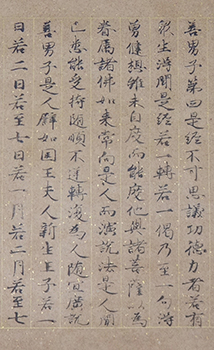 善男子第四是經不可思議功德力者若有
衆生得聞是經若一轉若一偈乃至一句得
勇健想雖未自度而能度他與諸菩薩以為
眷屬諸佛如來常向是人而演說法是人聞
已悉能受持隨順不逆轉復為人隨宜廣說
善男子是人譬如国王夫人新生王子若一
日若二日若至七日若一月若二月若至七